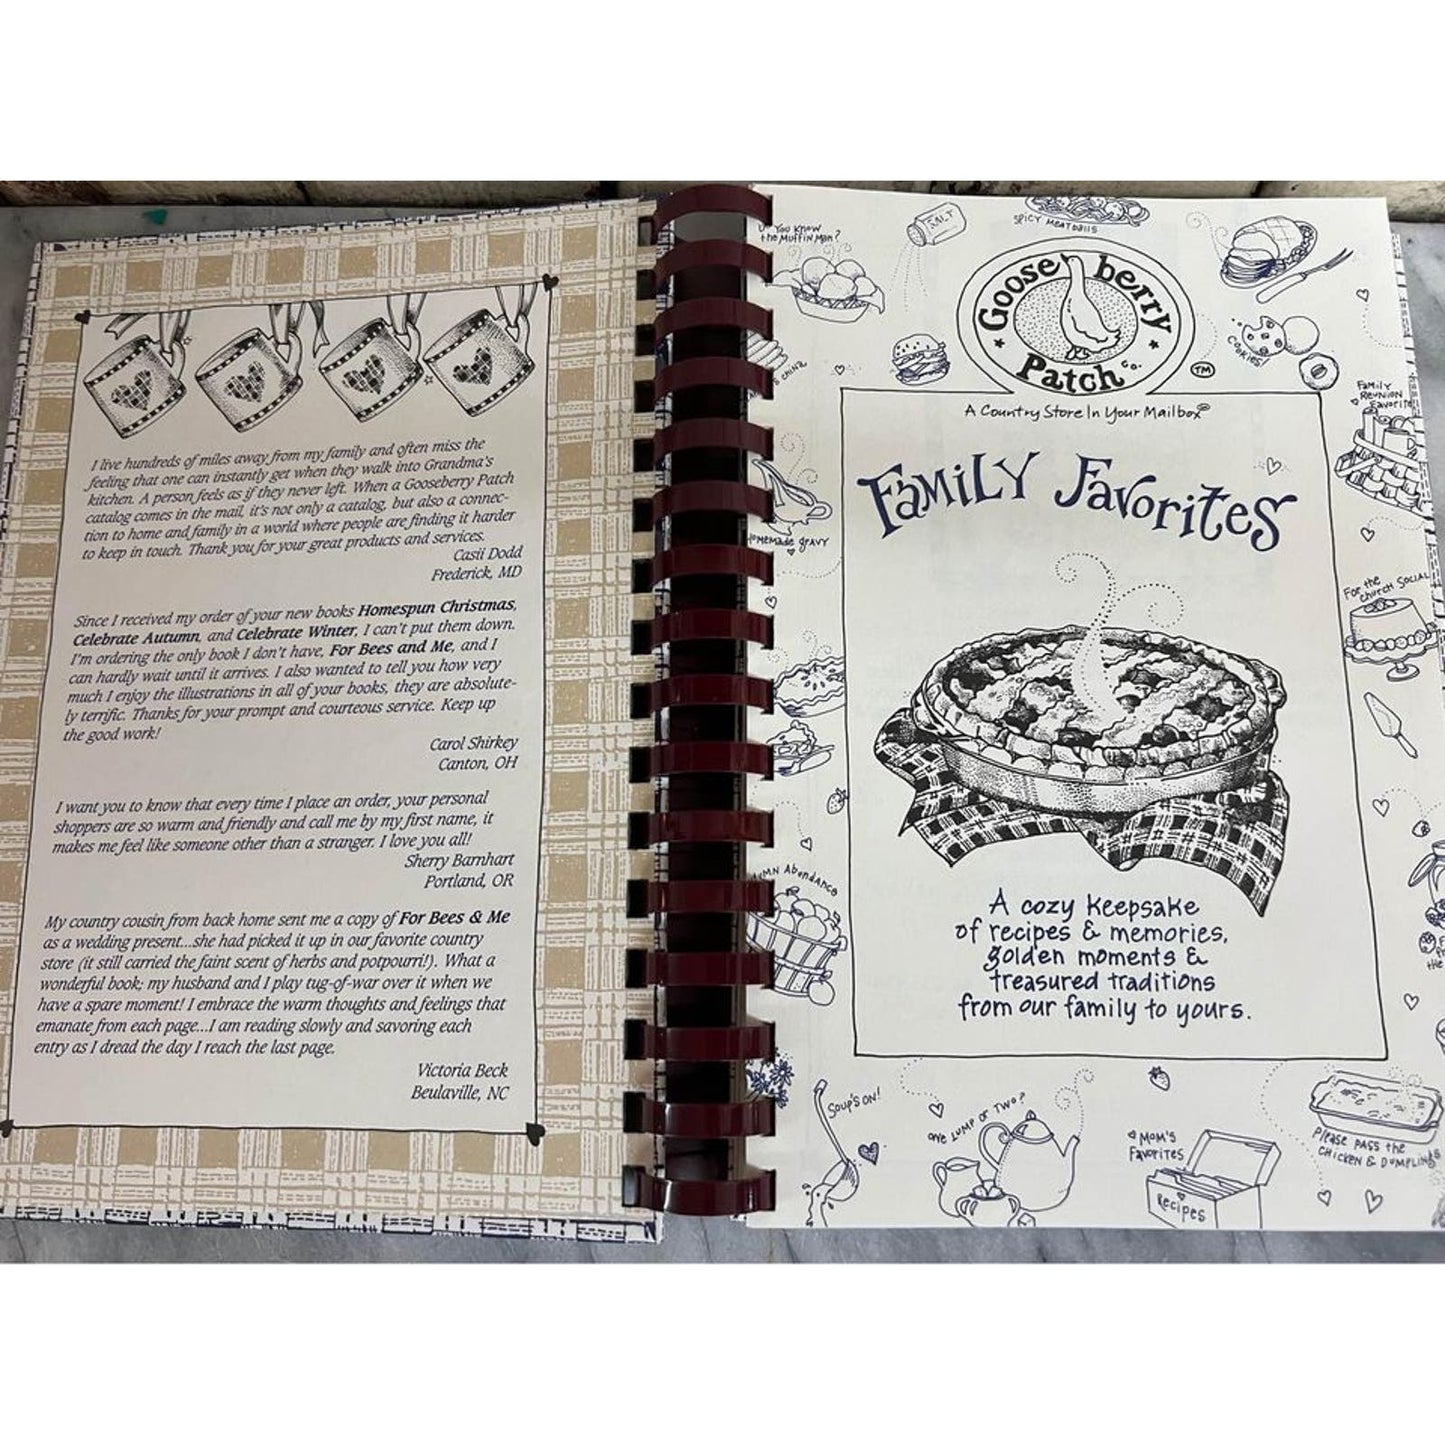 I live hundreds of miles away from my family and often miss the
feeling that one can instantly get when they walk into Grandma's
kitchen. A person feels as if they never left. When a Gooseberry Patch
catalog comes in the mail, it's not only a catalog, but also a connec-
tion to home and family in a world where people are finding it harder
to keep in touch. Thank you for your great products and services.
Casii Dodd
Frederick, MD
Since I received my order of your new books Homespun Christmas,
Celebrate Autumn, and Celebrate Winter, I can't put them down.
I'm ordering the only book I don't have, For Bees and Me, and I
can hardly wait until it arrives. I also wanted to tell you how very
much I enjoy the illustrations in all of your books, they are absolute-
ly terrific. Thanks for your prompt and courteous service. Keep up
the good work!
Carol Shirkey
Canton, OH
I want you to know that every time I place an order, your personal
shoppers are so warm and friendly and call me by my first name, it
makes me feel like someone other than a stranger. I love you all!
Sherry Barnhart
Portland, OR
My country cousin from back home sent me a copy of For Bees & Me
as a wedding present...she had picked it up in our favorite country
store (it still carried the faint scent of herbs and potpourri!). What a
wonderful book; my husband and I play tug-of-war over it when we
have a spare moment! I embrace the warm thoughts and feelings that
emanate from each page...I am reading slowly and savoring each
entry as I dread the day I reach the last page.
Victoria Beck
Beulaville, NC
you Know
the Muffin Man?
SALT
SPICY MEATballS
Gooseberry
Patch
Co.
TM
A Country Store In Your Mailbox®
Cookies!
Family
Reunion
Favorite!
china
Family Favorites
Homemade gravy
For the
Church Social
Abundance
A cozy keepsake
of recipes & memories,
golden moments &
treasured traditions
from our family to yours.
Soup's on!
one lump or two?
Mom's
Favorites
Recipes
Please pass the
chicken & dumplings